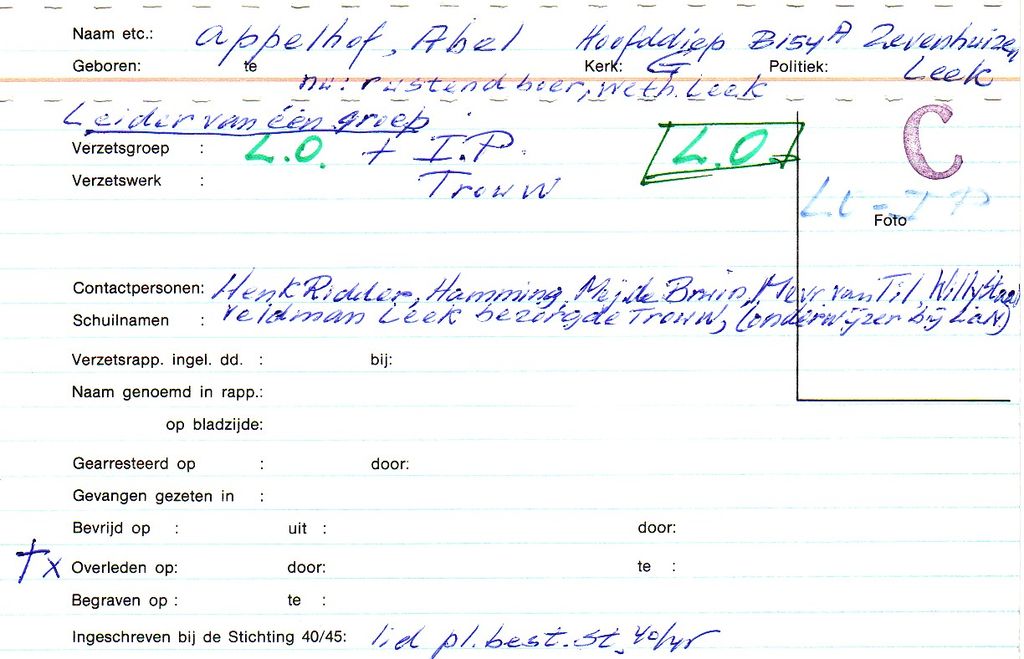 Naam etc.: Appelhof, Abel Hoofddiep B154A Zevenhuizen
Geboren: te Kerk: G Politiek: Leek
nu: rustend boer, weth. Leek
Leider van één groep
Verzetsgroep : L.O. + I.P. L.O. C
Verzetswerk : Trouw
L.O - I P
Foto
Contactpersonen: Henk Ridder, Hamming, Mej. de Bruin, Mevr. van Til, Willy
Schuilnamen : Veldman Leek bezorgde Trouw, (onderwijzer bij LaN)
Verzetsrapp. ingel. dd. : bij:
Naam genoemd in rapp.:
op bladzijde:
Gearresteerd op : door:
Gevangen gezeten in :
Bevrijd op : uit : door:
† x Overleden op: door: te :
Begraven op : te :
Ingeschreven bij de Stichting 40/45: lid pl. best. St. 40/45